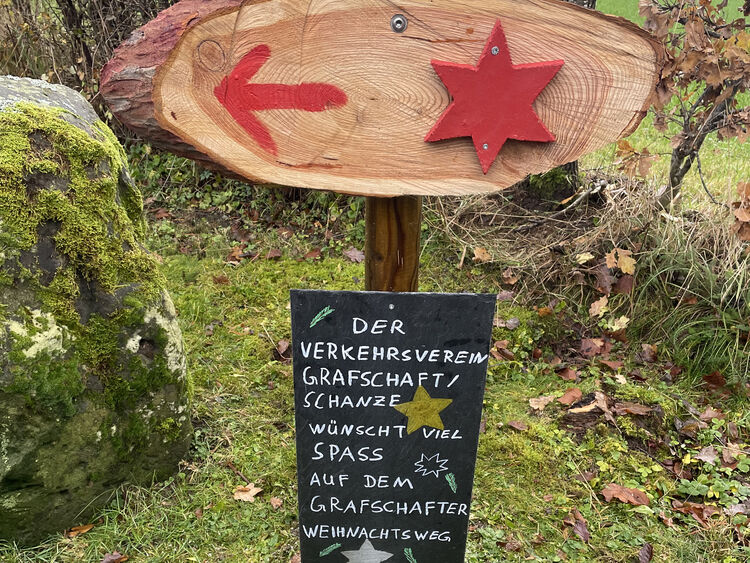 DER
VERKEHRSVEREIN
GRAFSCHAFT/
SCHANZE
WÜNSCHT VIEL
SPASS
AUF DEM
GRAFSCHAFTER
WEIHNACHTSWEG